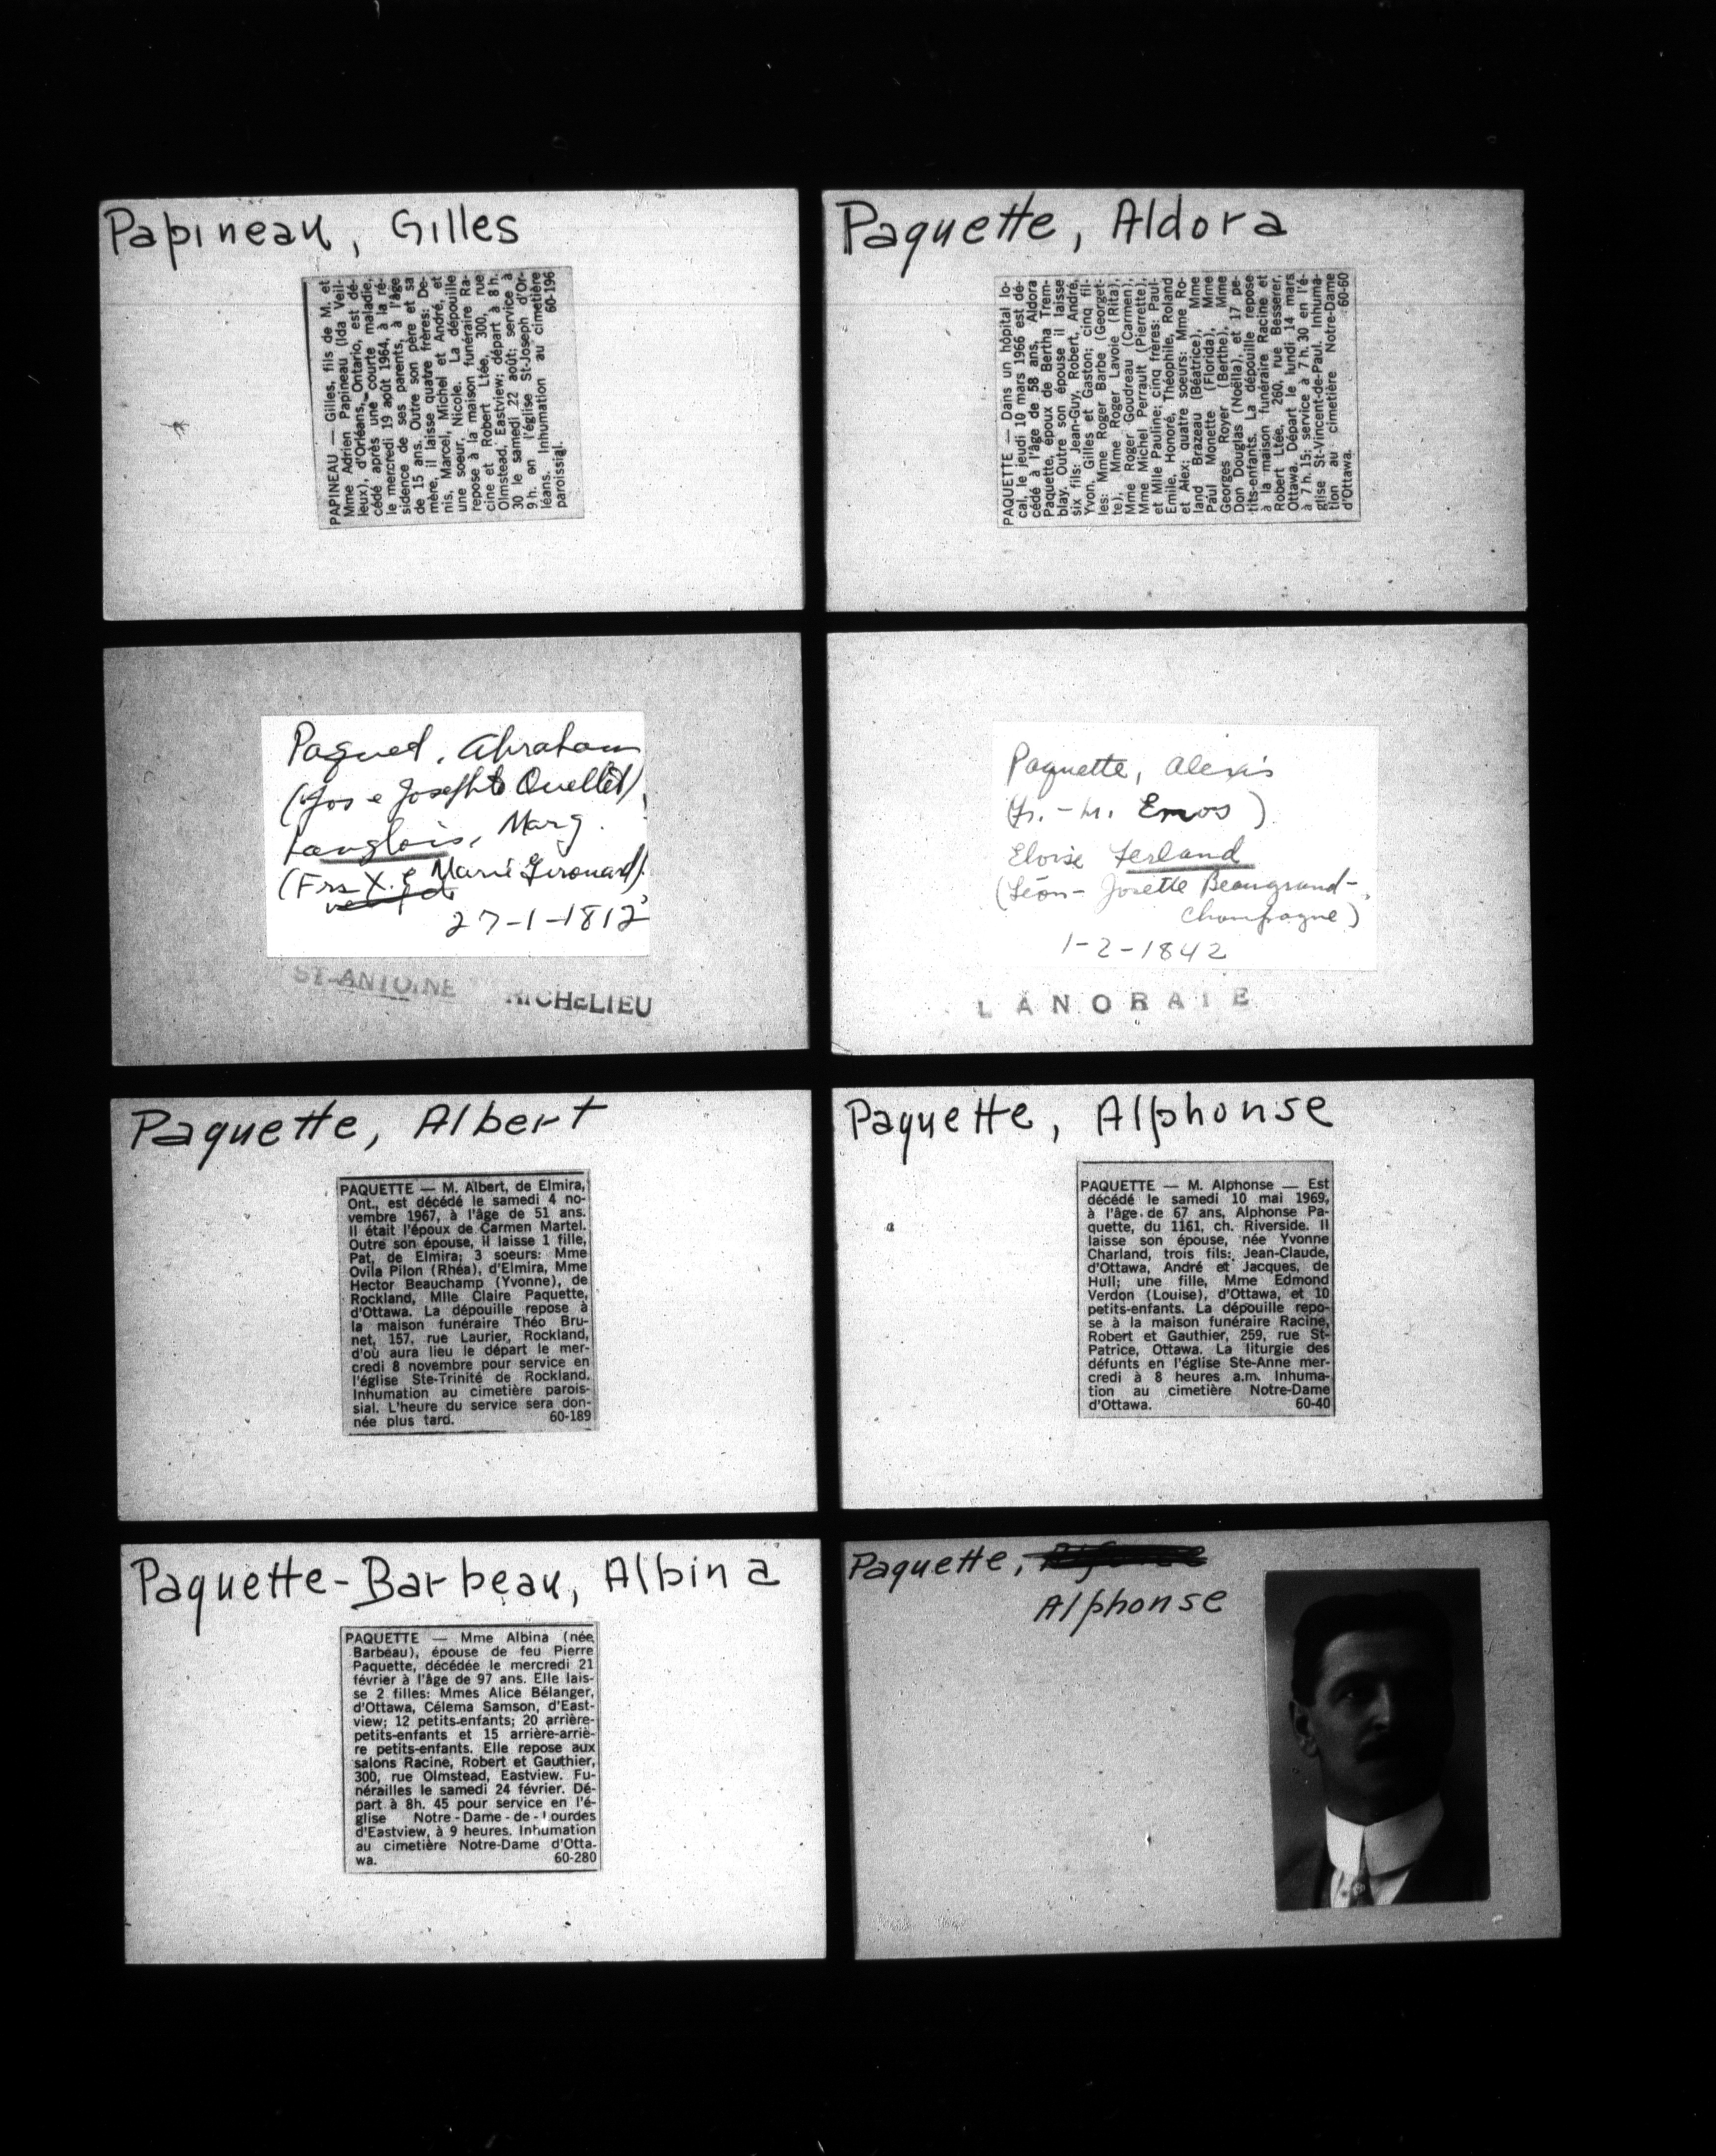 Papineau, Gilles
PAPINEAU — Gilles, fils de M. et
Mme Adrien Papineau (Ida Veil-
leux), d'Orléans, Ontario, est dé-
cédé après une courte maladie,
le mercredi 19 août 1964, à la ré-
sidence de ses parents, à l'âge
de 15 ans. Outre son père et sa
mère, il laisse quatre frères: De-
nis, Marcel, Michel et André, et
une soeur, Nicole. La dépouille
repose à la maison funéraire Ra-
cine et Robert Ltée, 300, rue
Olmstead, Eastview; départ à 8 h.
30 le samedi 22 août; service à
9 h. en l'église St-Joseph d'Or-
léans. Inhumation au cimetière
paroissial. 60-196
Paquette, Aldora
PAQUETTE — Dans un hôpital lo-
cal, le jeudi 10 mars 1966 est dé-
cédé à l'âge de 58 ans, Aldora
Paquette, époux de Bertha Trem-
blay. Outre son épouse il laisse
six fils: Jean-Guy, Robert, André,
Yvon, Gilles et Gaston; cinq fil-
les: Mme Roger Barbe (Georget-
te), Mme Roger Lavoie (Rita),
Mme Roger Goudreau (Carmen),
Mme Michel Perrault (Pierrette),
et Mlle Pauline; cinq frères: Paul-
Emile, Honoré, Théophile, Rolland
et Alex; quatre soeurs: Mme Ro-
land Brazeau (Béatrice), Mme
Paul Monette (Florida), Mme
Georges Royer (Berthe), Mme
Don Douglas (Noëlla), et 17 pe-
tits-enfants. La dépouille repose
à la maison funéraire Racine et
Robert Ltée, 260, rue Besserer,
Ottawa. Départ le lundi 14 mars
à 7 h. 15; service à 7 h. 30 en l'é-
glise St-Vincent-de-Paul. Inhuma-
tion au cimetière Notre-Dame
d'Ottawa. 60-60
Paquet, Abraham
(Jos e Josephte Ouellet)
Langlois, Marg.
(Frs X. e Marie Girouard)
27-1-1812
ST-ANTOINE RICHELIEU
Paquette, Alexis
(Jr. - M. Enos)
Eloise Ferland
(Léon - Josette Beaugrand-
Champagne)
1-2-1842
LANORAIE
Paquette, Albert
PAQUETTE — M. Albert, de Elmira,
Ont., est décédé le samedi 4 no-
vembre 1967, à l'âge de 51 ans.
Il était l'époux de Carmen Martel.
Outre son épouse, il laisse 1 fille,
Pat, de Elmira; 3 soeurs: Mme
Ovila Pilon (Rhéa), d'Elmira, Mme
Hector Beauchamp (Yvonne), de
Rockland, Mlle Claire Paquette,
d'Ottawa. La dépouille repose à
la maison funéraire Théo Bru-
net, 157, rue Laurier, Rockland,
d'où aura lieu le départ le mer-
credi 8 novembre pour service en
l'église Ste-Trinité de Rockland.
Inhumation au cimetière parois-
sial. L'heure du service sera don-
née plus tard. 60-189
Paquette, Alphonse
PAQUETTE — M. Alphonse — Est
décédé le samedi 10 mai 1969,
à l'âge de 67 ans, Alphonse Pa-
quette, du 1161, ch. Riverside. Il
laisse son épouse, née Yvonne
Charland, trois fils: Jean-Claude,
d'Ottawa, André et Jacques, de
Hull; une fille, Mme Edmond
Verdon (Louise), d'Ottawa, et 10
petits-enfants. La dépouille repo-
se à la maison funéraire Racine,
Robert et Gauthier, 259, rue St-
Patrice, Ottawa. La liturgie des
défunts en l'église Ste-Anne mer-
credi à 8 heures a.m. Inhuma-
tion au cimetière Notre-Dame
d'Ottawa. 60-40
Paquette-Barbeau, Albina
PAQUETTE — Mme Albina (née
Barbeau), épouse de feu Pierre
Paquette, décédée le mercredi 21
février à l'âge de 97 ans. Elle lais-
se 2 filles: Mmes Alice Bélanger,
d'Ottawa, Célema Samson, d'East-
view; 12 petits-enfants; 20 arrière-
petits-enfants et 15 arrière-arriè-
re petits-enfants. Elle repose aux
salons Racine, Robert et Gauthier,
300, rue Olmstead, Eastview. Fu-
nérailles le samedi 24 février. Dé-
part à 8h. 45 pour service en l'é-
glise Notre-Dame-de-Lourdes
d'Eastview, à 9 heures. Inhumation
au cimetière Notre-Dame d'Otta-
wa. 60-280
Paquette,
Alphonse